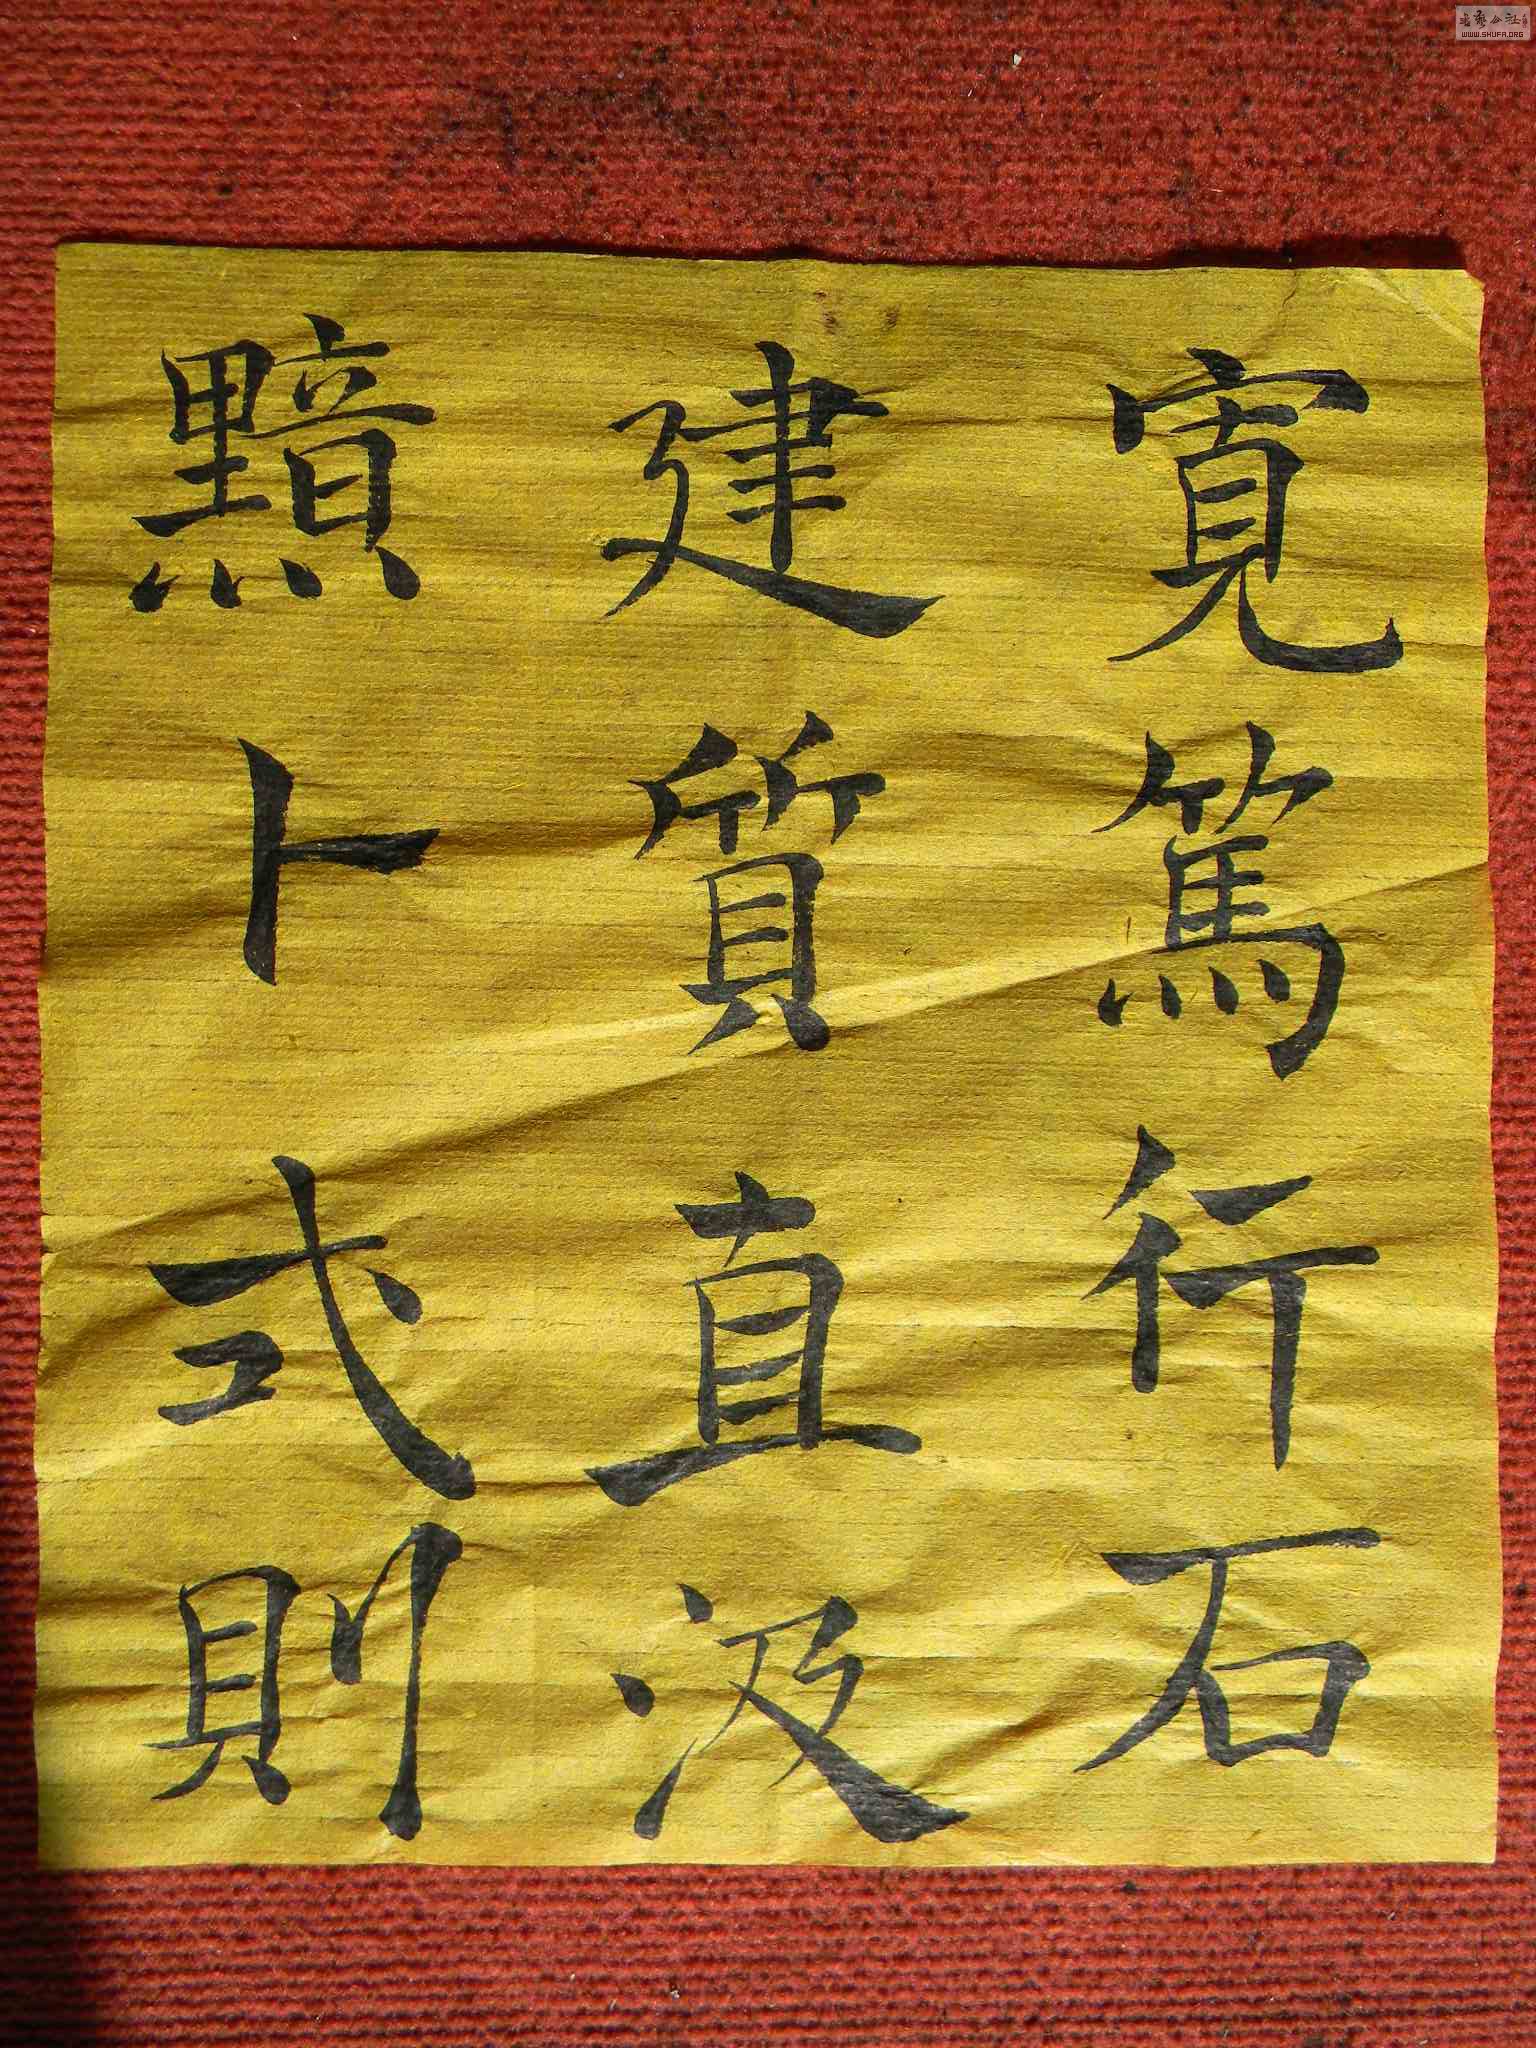 寬篤行石
建質直汲
黯卜式則
書藝公社
WWW.SHUFA.ORG